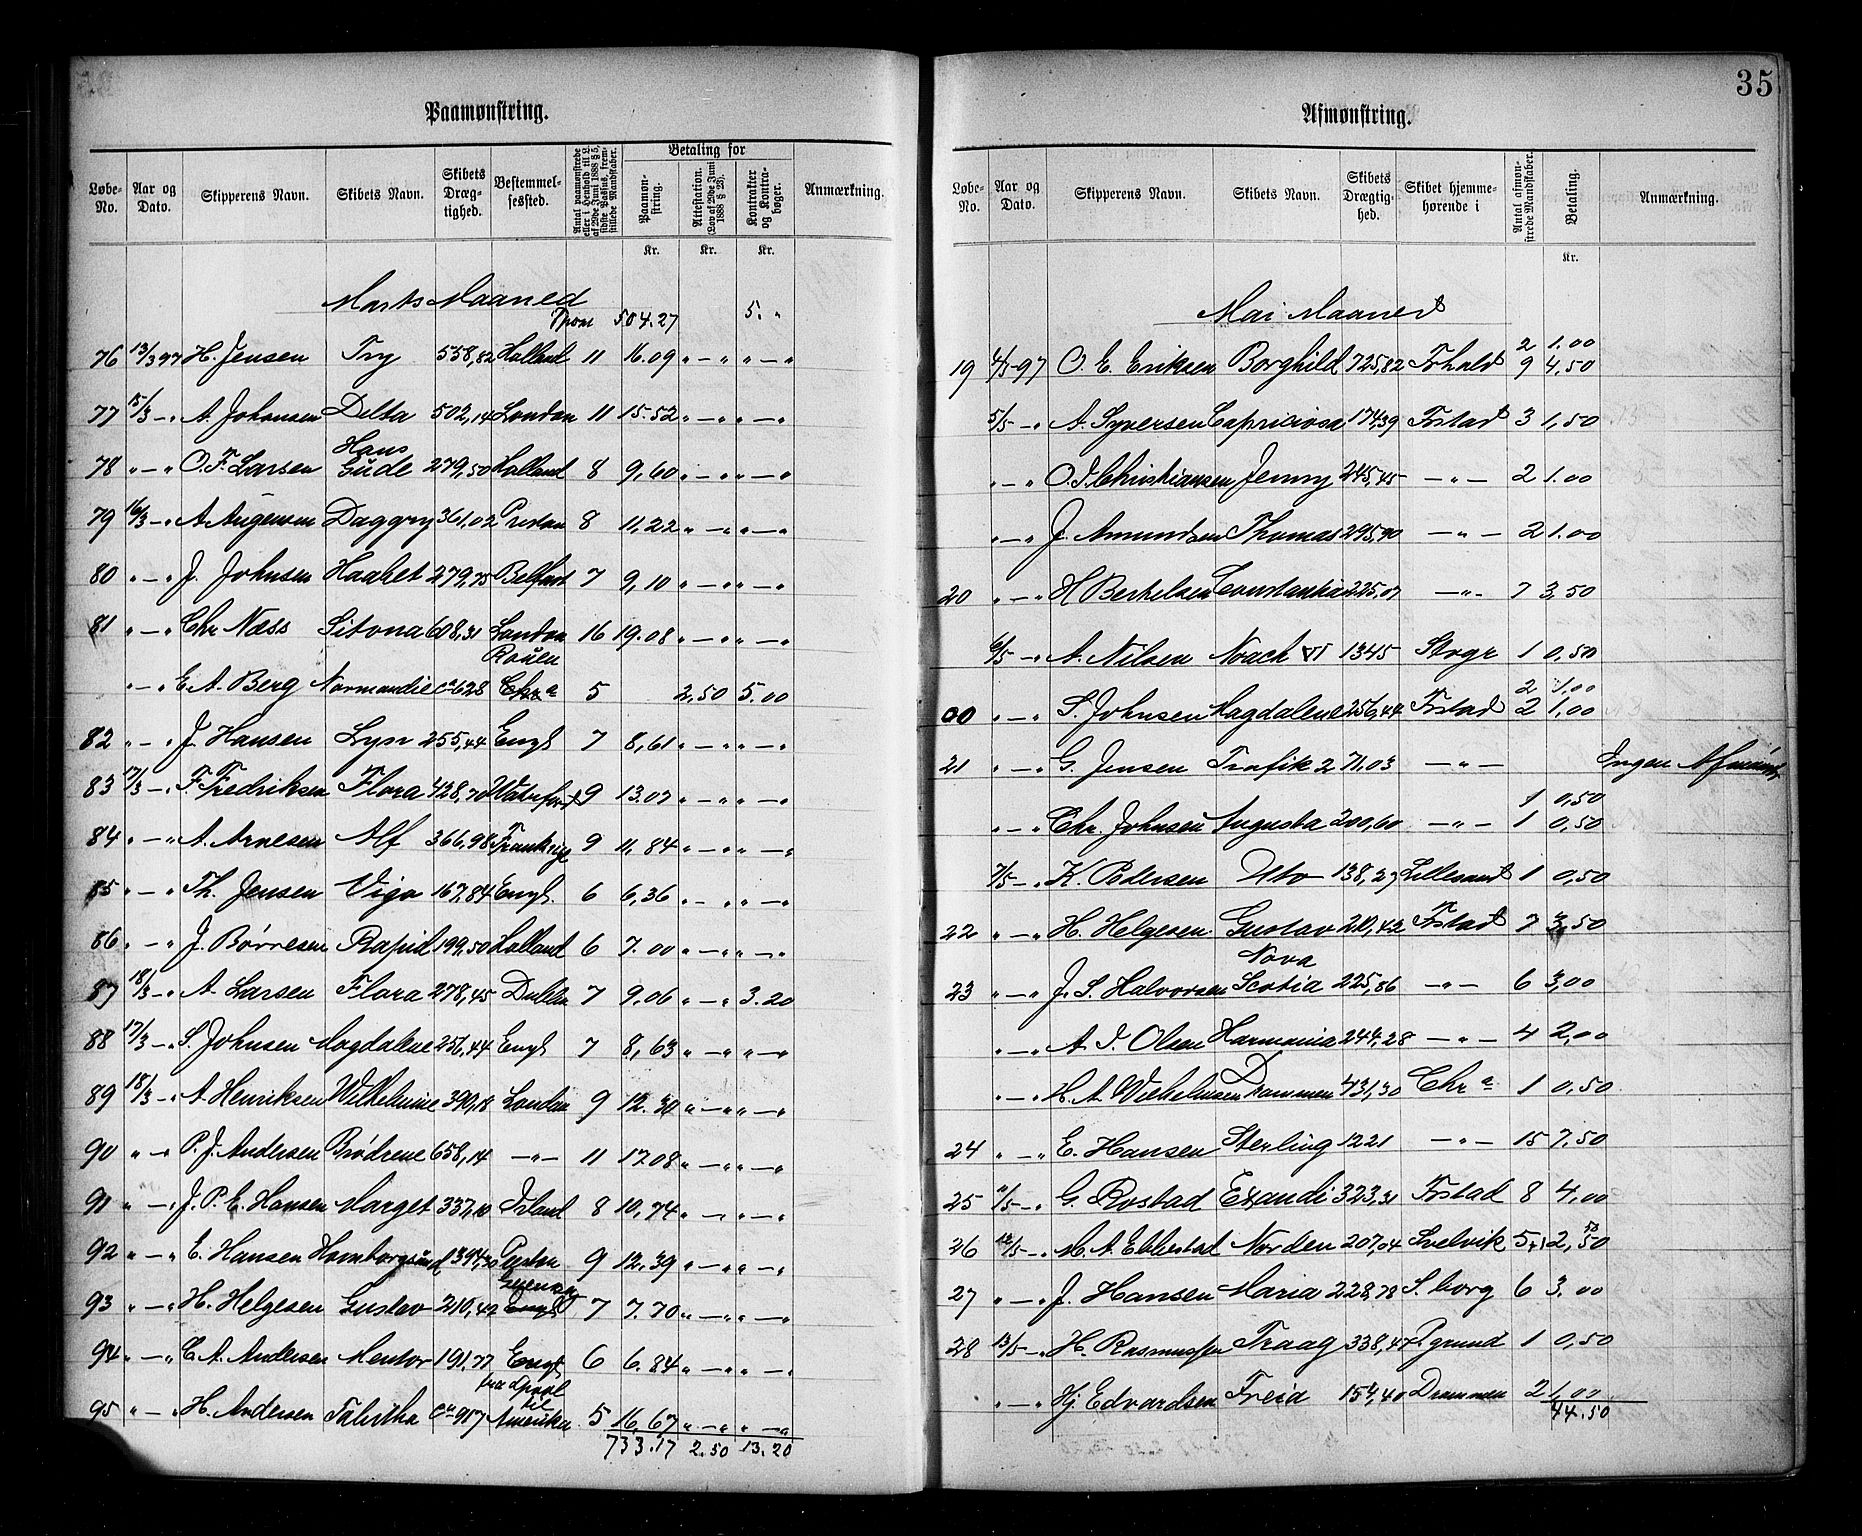 35
Paamønstring.
Løbe-No. Aar og Dato. Skippernes Navn. Skibets Navn. Skibets Drægtighed. Bestemmelsessted. Antal paamønstrede eller i Henhold til L. af 29de Juni 1888 § 5, sidste Passus, fremstillede Mandskaber. Betaling for Paamønstring. Attestation. (Lov af 29de Juni 1888 § 23). Kontrakter og Kontrabøger. Anmærkning.
Kr. Kr. Kr.
Marts Maaned
Tpor 504.27 5. "
76 13/3 97 H. Jensen Try 558,82 Holland 11 16.09 " — " " — "
77 15/3 — " A. Johansen Delta 502,14 London 11 15.52 " — " " — "
78 " — " O. F. Larsen Hans Gude 279,50 Holland 8 9,60 " — " " — "
79 16/3 — " A. Augensen Daggry 361,02 Preston 8 11,22 " — " " — "
80 " — " J. Johnsen Haabet 279,75 Belfast 7 9,10 " — " " — "
81 " — " Chr. Næss Sitona 608,31 London 16 19.08 " — " " — "
" — " E. A. Berg Normandie ca 628 Rouen Chra 5 2,50 5.00
82 " — " J. Hansen Lyn 255,44 Engl 7 8,61 " — " " — "
83 17/3 — " F. Fredriksen Flora 428,70 Waterford 9 13.07 " — " " — "
84 " — " A. Arnesen Alf 366,98 Frankrige 9 11,84 " — " " — "
85 " — " Th. Jensen Viga 167,84 Engl. 6 6,36 " — " " — "
86 " — " J. Børresen Rapid 199,50 Holland 6 7.00 " — " " — "
87 18/3 — " A. Larsen Flora 278,45 Dublin 7 9.06 " — " 3.20
88 17/3 — " S. Johnsen Magdalene 256,44 Engl 7 8,63 " — " " — "
89 18/3 — " A. Henriksen Wilhelmine 390,18 London 9 12.30 " — " " — "
90 " — " P. J. Andersen Brødrene 658,14 — " — 11 17.08 " — " " — "
91 " — " J. P. E. Hansen Marget 337,10 Irland 8 10,74 " — " " — "
92 " — " E. Hansen Homborgsund 394,30 Preston 9 12.39 " — " " — "
93 " — " H. Helgesen Gustav 210,42 Engl 7 7.70 " — " " — "
94 " — " C. A. Andersen Mentor 191,77 Engl 6 6.84 " — " " — "
95 " — " H. Andersen Tabitha ca 957 til Amerika 5 16,67 " — " " — "
733.17 2.50 13.20
Afmønstring.
Løbe-No. Aar og Dato. Skipperens Navn. Skibets Navn. Skibets Drægtighed. Skibet hjemmehørende i Antal afmønstrede Mandskaber. Betaling. Anmærkning.
Kr.
Mai Maaned
2 1.00
19 4/5-97 O. E. Eriksen Borghild 725,82 Frhald 9 4,50
5/5 — " A. Syversen Capriciosa 174,39 Frstad 3 1,50
" — " O. J. Christiansen Jenny 245,45 — " — 2 1.00
" — " J. Amundsen Thomas 295,90 — " — 2 1.00
20 " — " H Berthelsen Constantia 225,07 — " — 7 3,50
6/5 — " A. Nilsen Noach VI 1345 Stvgr 1 0,50
2 1.00
00 " — " S. Johnsen Magdalene 256,44 Frstad 2 1,00
21 " — " G. Jensen Trafik 271,03 — " — Ingen Afmønst.
1 0,50
" — " Chr. Johnsen Augusta 200,60 — " — 1 0,50
7/5 — " K. Pedersen Uto 138,27 Lillesand 1 0,50
22 " — " H. Helgesen Gustav 210,42 Frstad 7 3,50
23 " — " J. S. Halvorsen Nova Scotia 225,86 — " — 6 3,00
" — " A. J. Olsen Harmonia 244,28 — " — 4 2,00
" — " H. A. Wilhelmsen Drammen 431,30 Chra 1 0,50
24 " — " E. Hansen Sterling 1221 — " — 15 7,50
25 11/5 — " G. Rostad Exandi 323,31 Frstad 8 4,00
26 12/5 — " M. A. Ebbestad Norden 207,04 Svelvik 5+1 2,50 50
27 " — " J. Hansen Maria 228,78 S.borg 6 3.00
28 13/5 — " H. Rasmussen Traag 338,47 P.grund 1 0,50
" — " Hj. Edvardsen Freia 154,40 Drammen 2 1,00
44.50